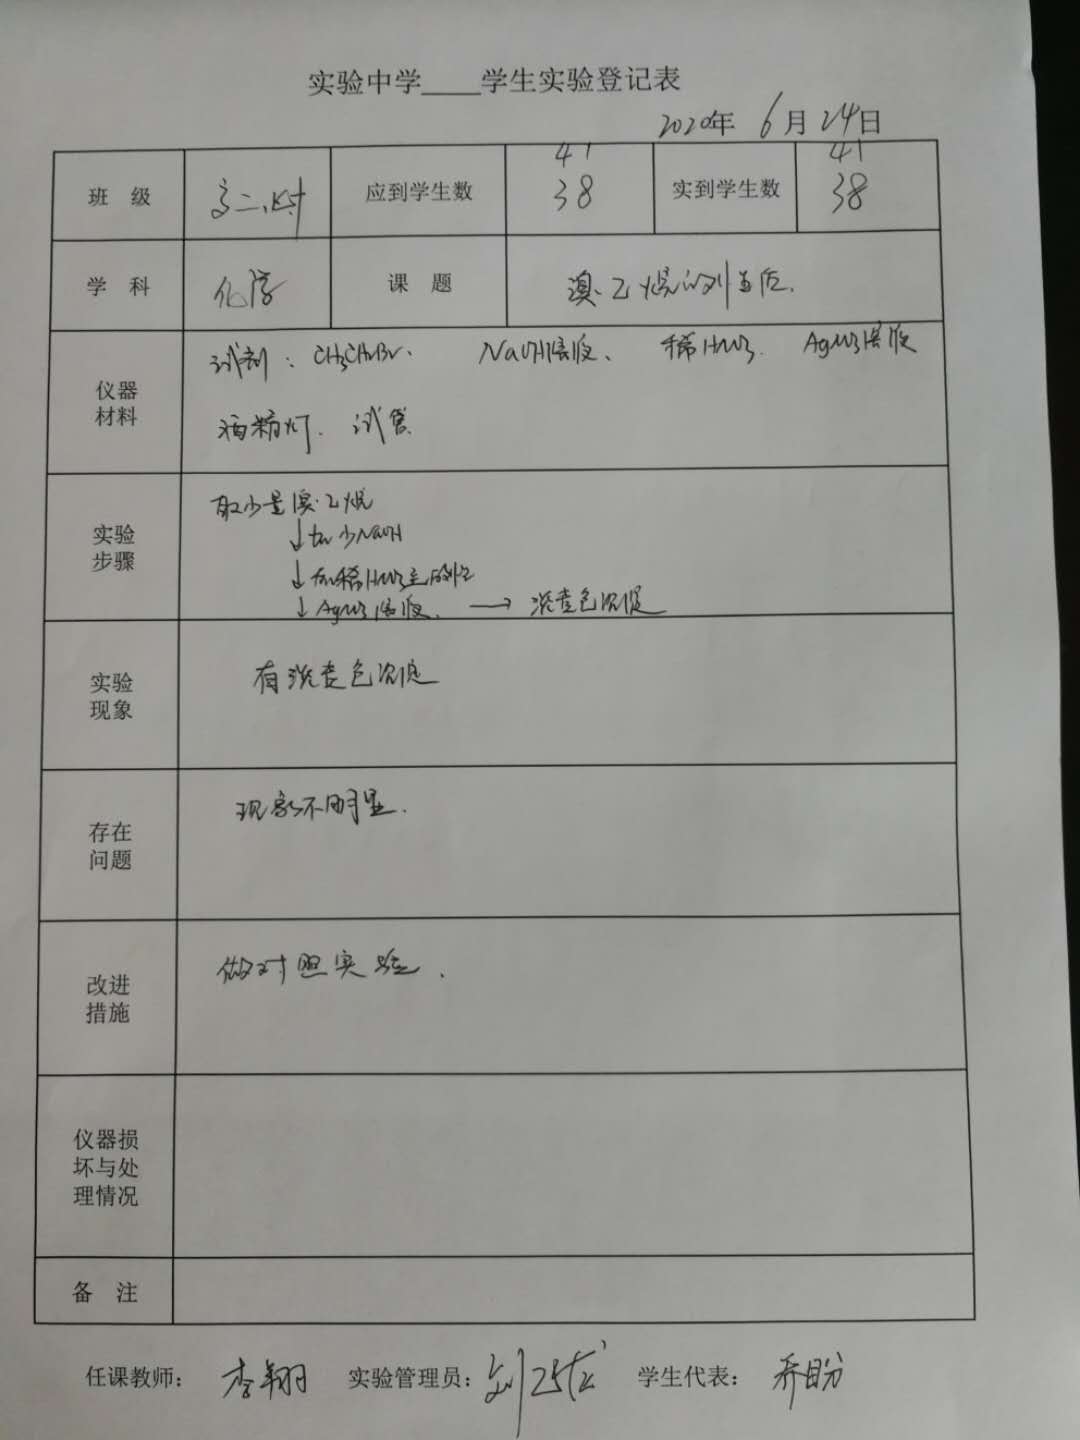 实验中学____学生实验登记表
2020年 6月24日
班 级
应到学生数 41
38
实到学生数 41
38
学 科 化学 课 题 溴乙烷的
仪器材料 试剂：CH3CH2Br. NaOH溶液、 稀HNO3. AgNO3溶液
酒精灯. 试管
实验步骤 取少量溴乙烷
↓加少NaOH
↓加稀HNO3至酸性
↓AgNO3溶液. → 淡黄色沉淀
实验现象 有淡黄色沉淀
存在问题 现象不明显.
改进措施 做对照实验.
仪器损坏与处理情况
备 注
任课教师： 李翔 实验管理员： 学生代表：